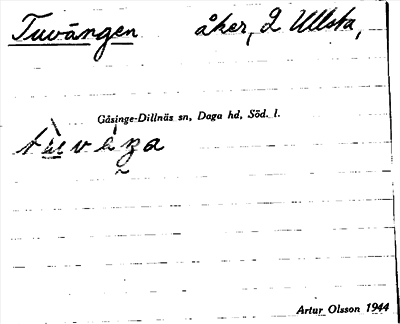 Tuvängen åker, 2 Ullsta,
Gåsinge-Dillnäs sn, Daga hd, Söd. l.
Artur Olsson 1944